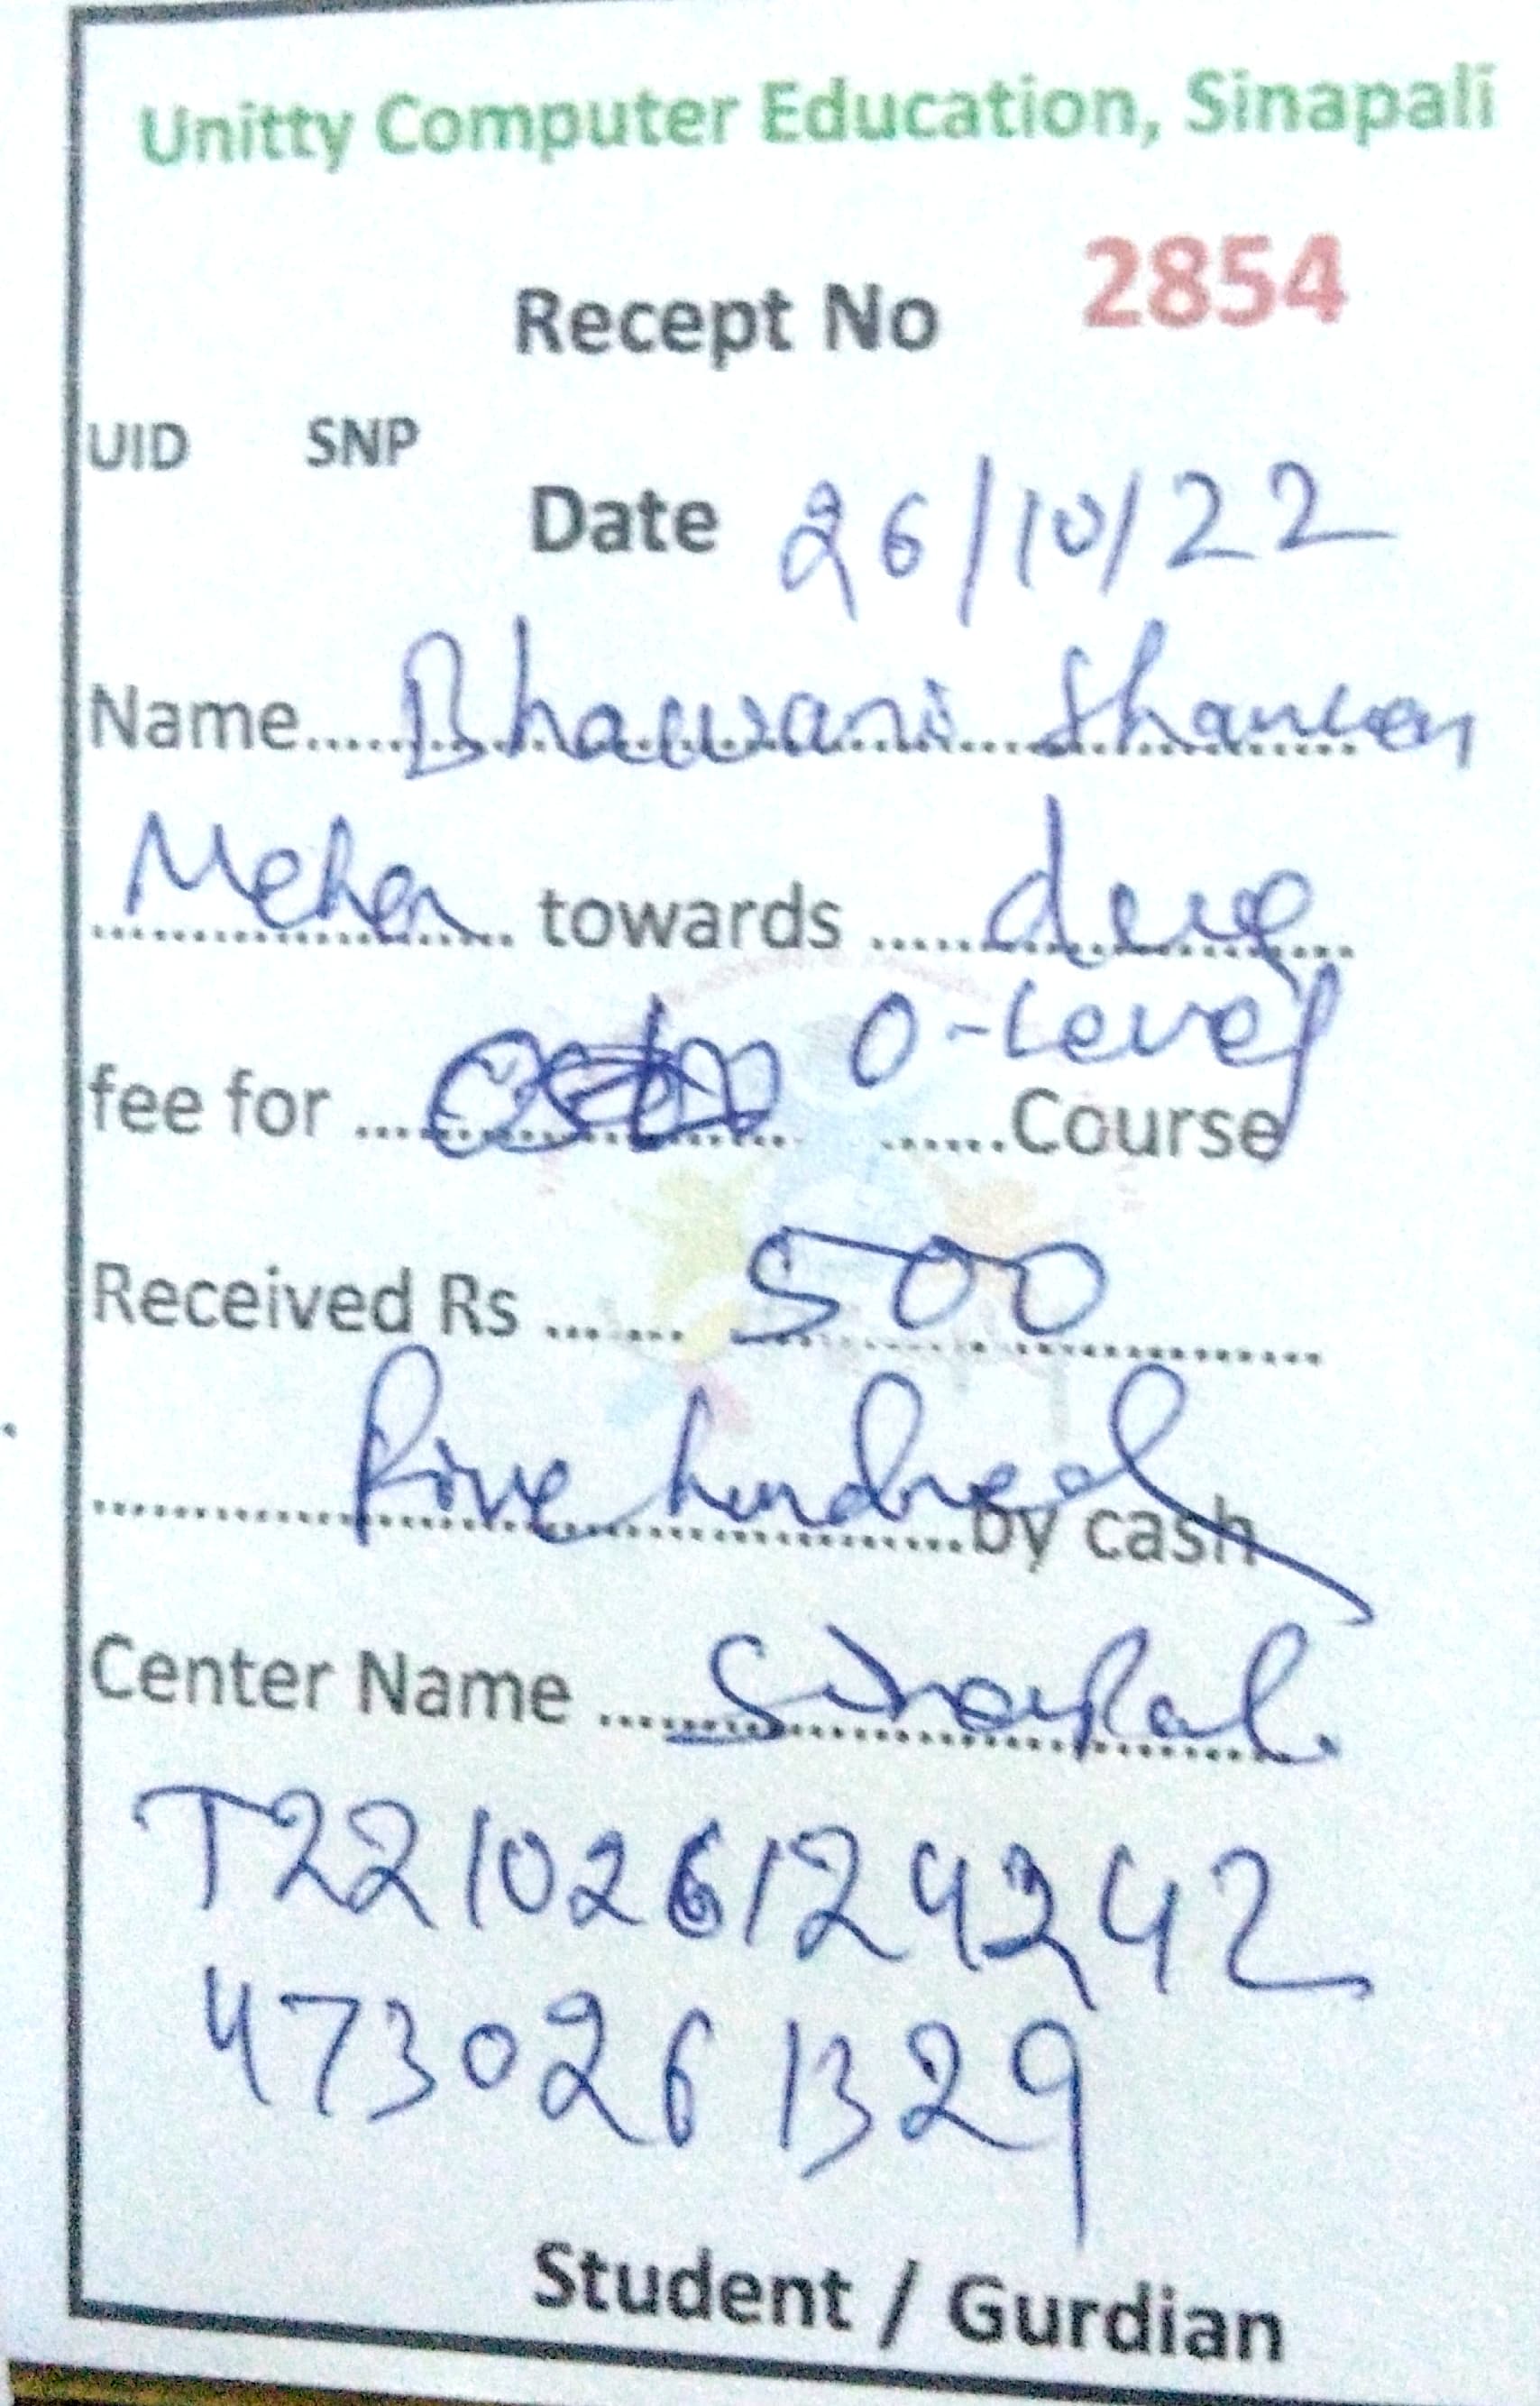 Unitty Computer Education, Sinapali
Recept No 2854
UID SNP
Date 26/10/22
Name..... Bhawani Shankar
Meher towards ..... due
O-Level
fee for ..... ......Course
Received Rs ....... 500
Five hundred by cash
Center Name ..... Sinapali
T221026124242
4730261329
Student / Gurdian